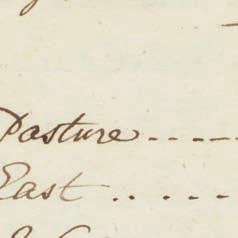 Pasture - - - -
East . . - - -